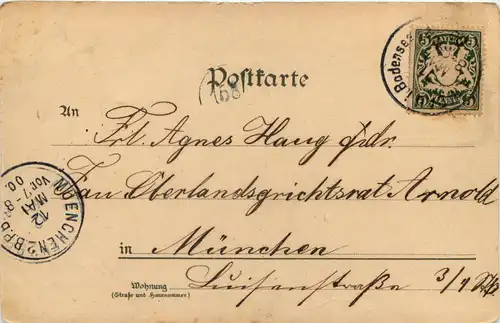 5 BAYERN 5
i. Bodensee
Postkarte
(158)
An
Frl. Agnes Haug Adr.
Frau Oberlandsgrichtsrat Arnold
in München
Wohnung
(Straße und Hausnummer)
Luisenstraße 3/1
MUENCHEN 2 B.P.
12
MAI
VOR. 7-8
00.